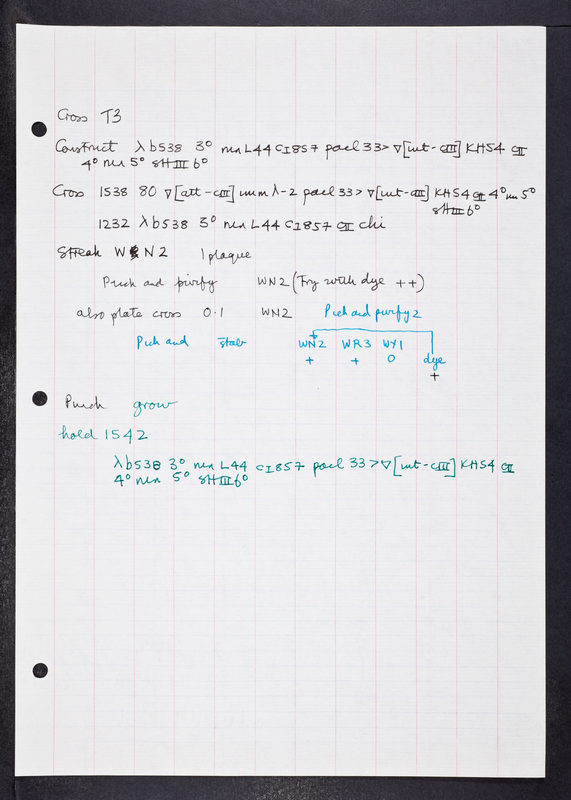 Cross T3
Construct λ b538 3° nin L44 cI857 pael 33> ▽[int-cIII] KH54 cII
4° nin 5° sHIII 6°
Cross 1538 80 ▽[att-cIII] imm λ-2 pael 33> ▽[int-cIII] KH54 cII 4° nin 5°
sHIII 6°
1232 λb538 3° nin L44 cI857 cII chi
Streak WN2 1 plaque
Pick and purify WN2 (Try with dye ++)
also plate cross 0.1 WN2 Pick and purify 2
Pick and stab WN2 WR3 WY1
+ + 0 dye
+
grow
hold 1542
λb538 3° nin L44 cI857 pael 33>▽[int-cIII] KH54 cII
4° nin 5° sHIII 6°